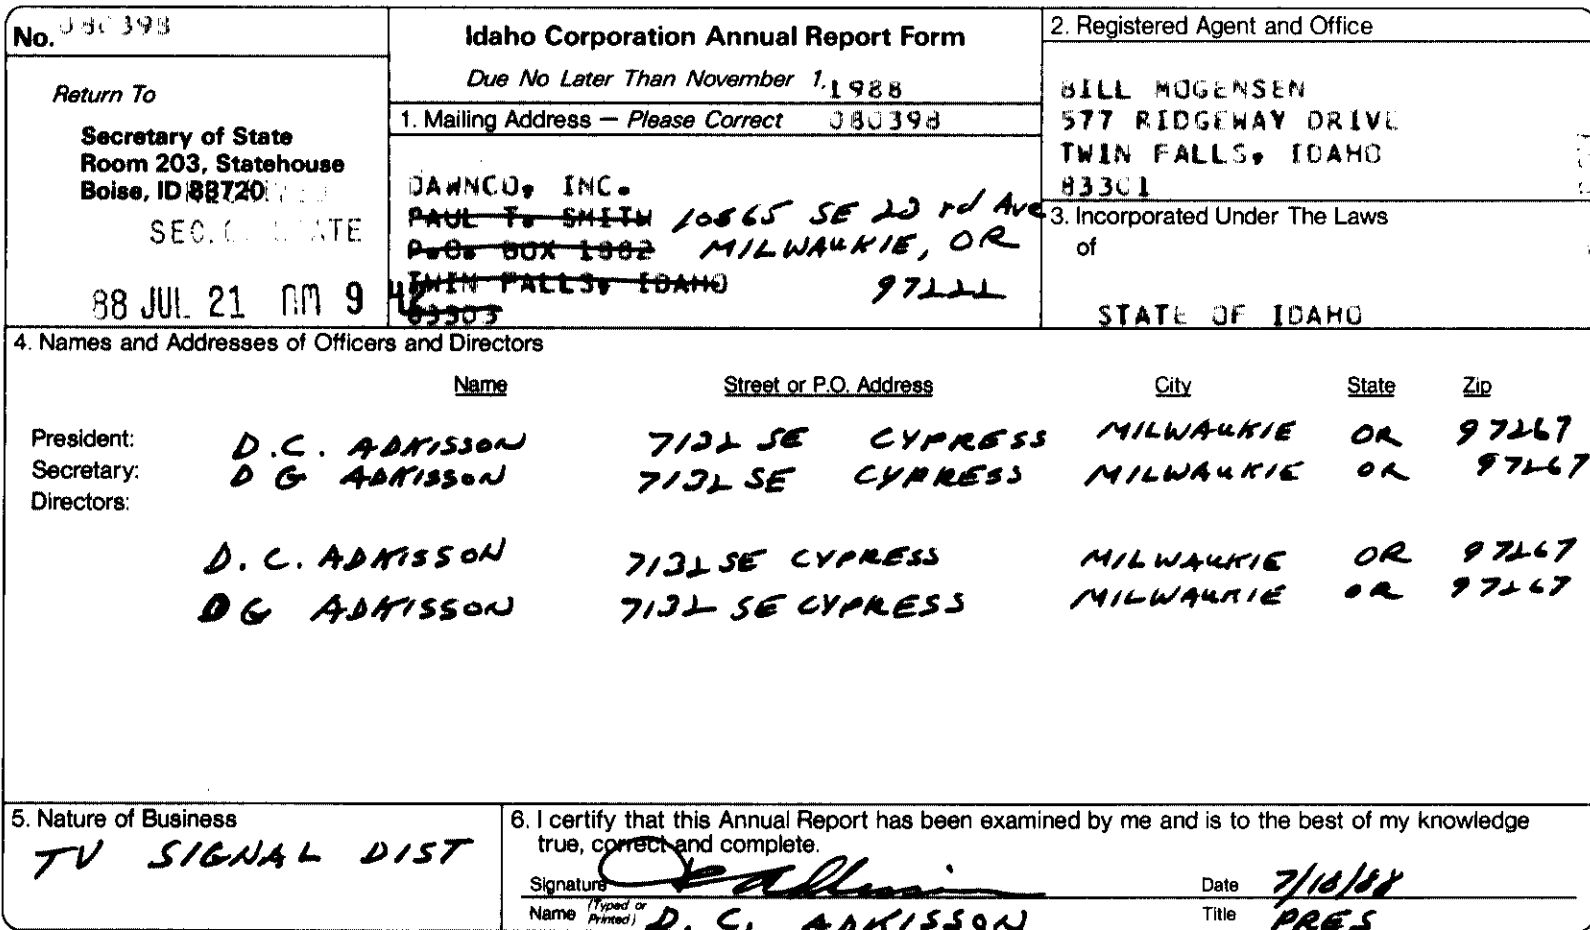 No. 080398
Idaho Corporation Annual Report Form
Due No Later Than November 1, 1988
Return To
Secretary of State
Room 203, Statehouse
Boise, ID 88720
SEC. STATE
88 JUL 21 AM 9 42
1. Mailing Address — Please Correct 080398
DAWNCO, INC.
PAUL T. SMITH 10865 SE 23 rd Ave
P.O. BOX 1882 MILWAUKIE, OR
TWIN FALLS, IDAHO 97222
83303
2. Registered Agent and Office
BILL MOGENSEN
577 RIDGEWAY DRIVE
TWIN FALLS, IDAHO
83301
3. Incorporated Under The Laws
of
STATE OF IDAHO
4. Names and Addresses of Officers and Directors
Name Street or P.O. Address City State Zip
President: D.C. ADKISSON 7132 SE CYPRESS MILWAUKIE OR 97267
Secretary: D G ADKISSON 7132 SE CYPRESS MILWAUKIE OR 97267
Directors:
D. C. ADKISSON 7132 SE CYPRESS MILWAUKIE OR 97267
DG ADKISSON 7132 SE CYPRESS MILWAUKIE OR 97267
5. Nature of Business
TV SIGNAL DIST
6. I certify that this Annual Report has been examined by me and is to the best of my knowledge
true, correct and complete.
Signature Date 7/18/88
Name (Typed or Printed) D. C. ADKISSON Title PRES